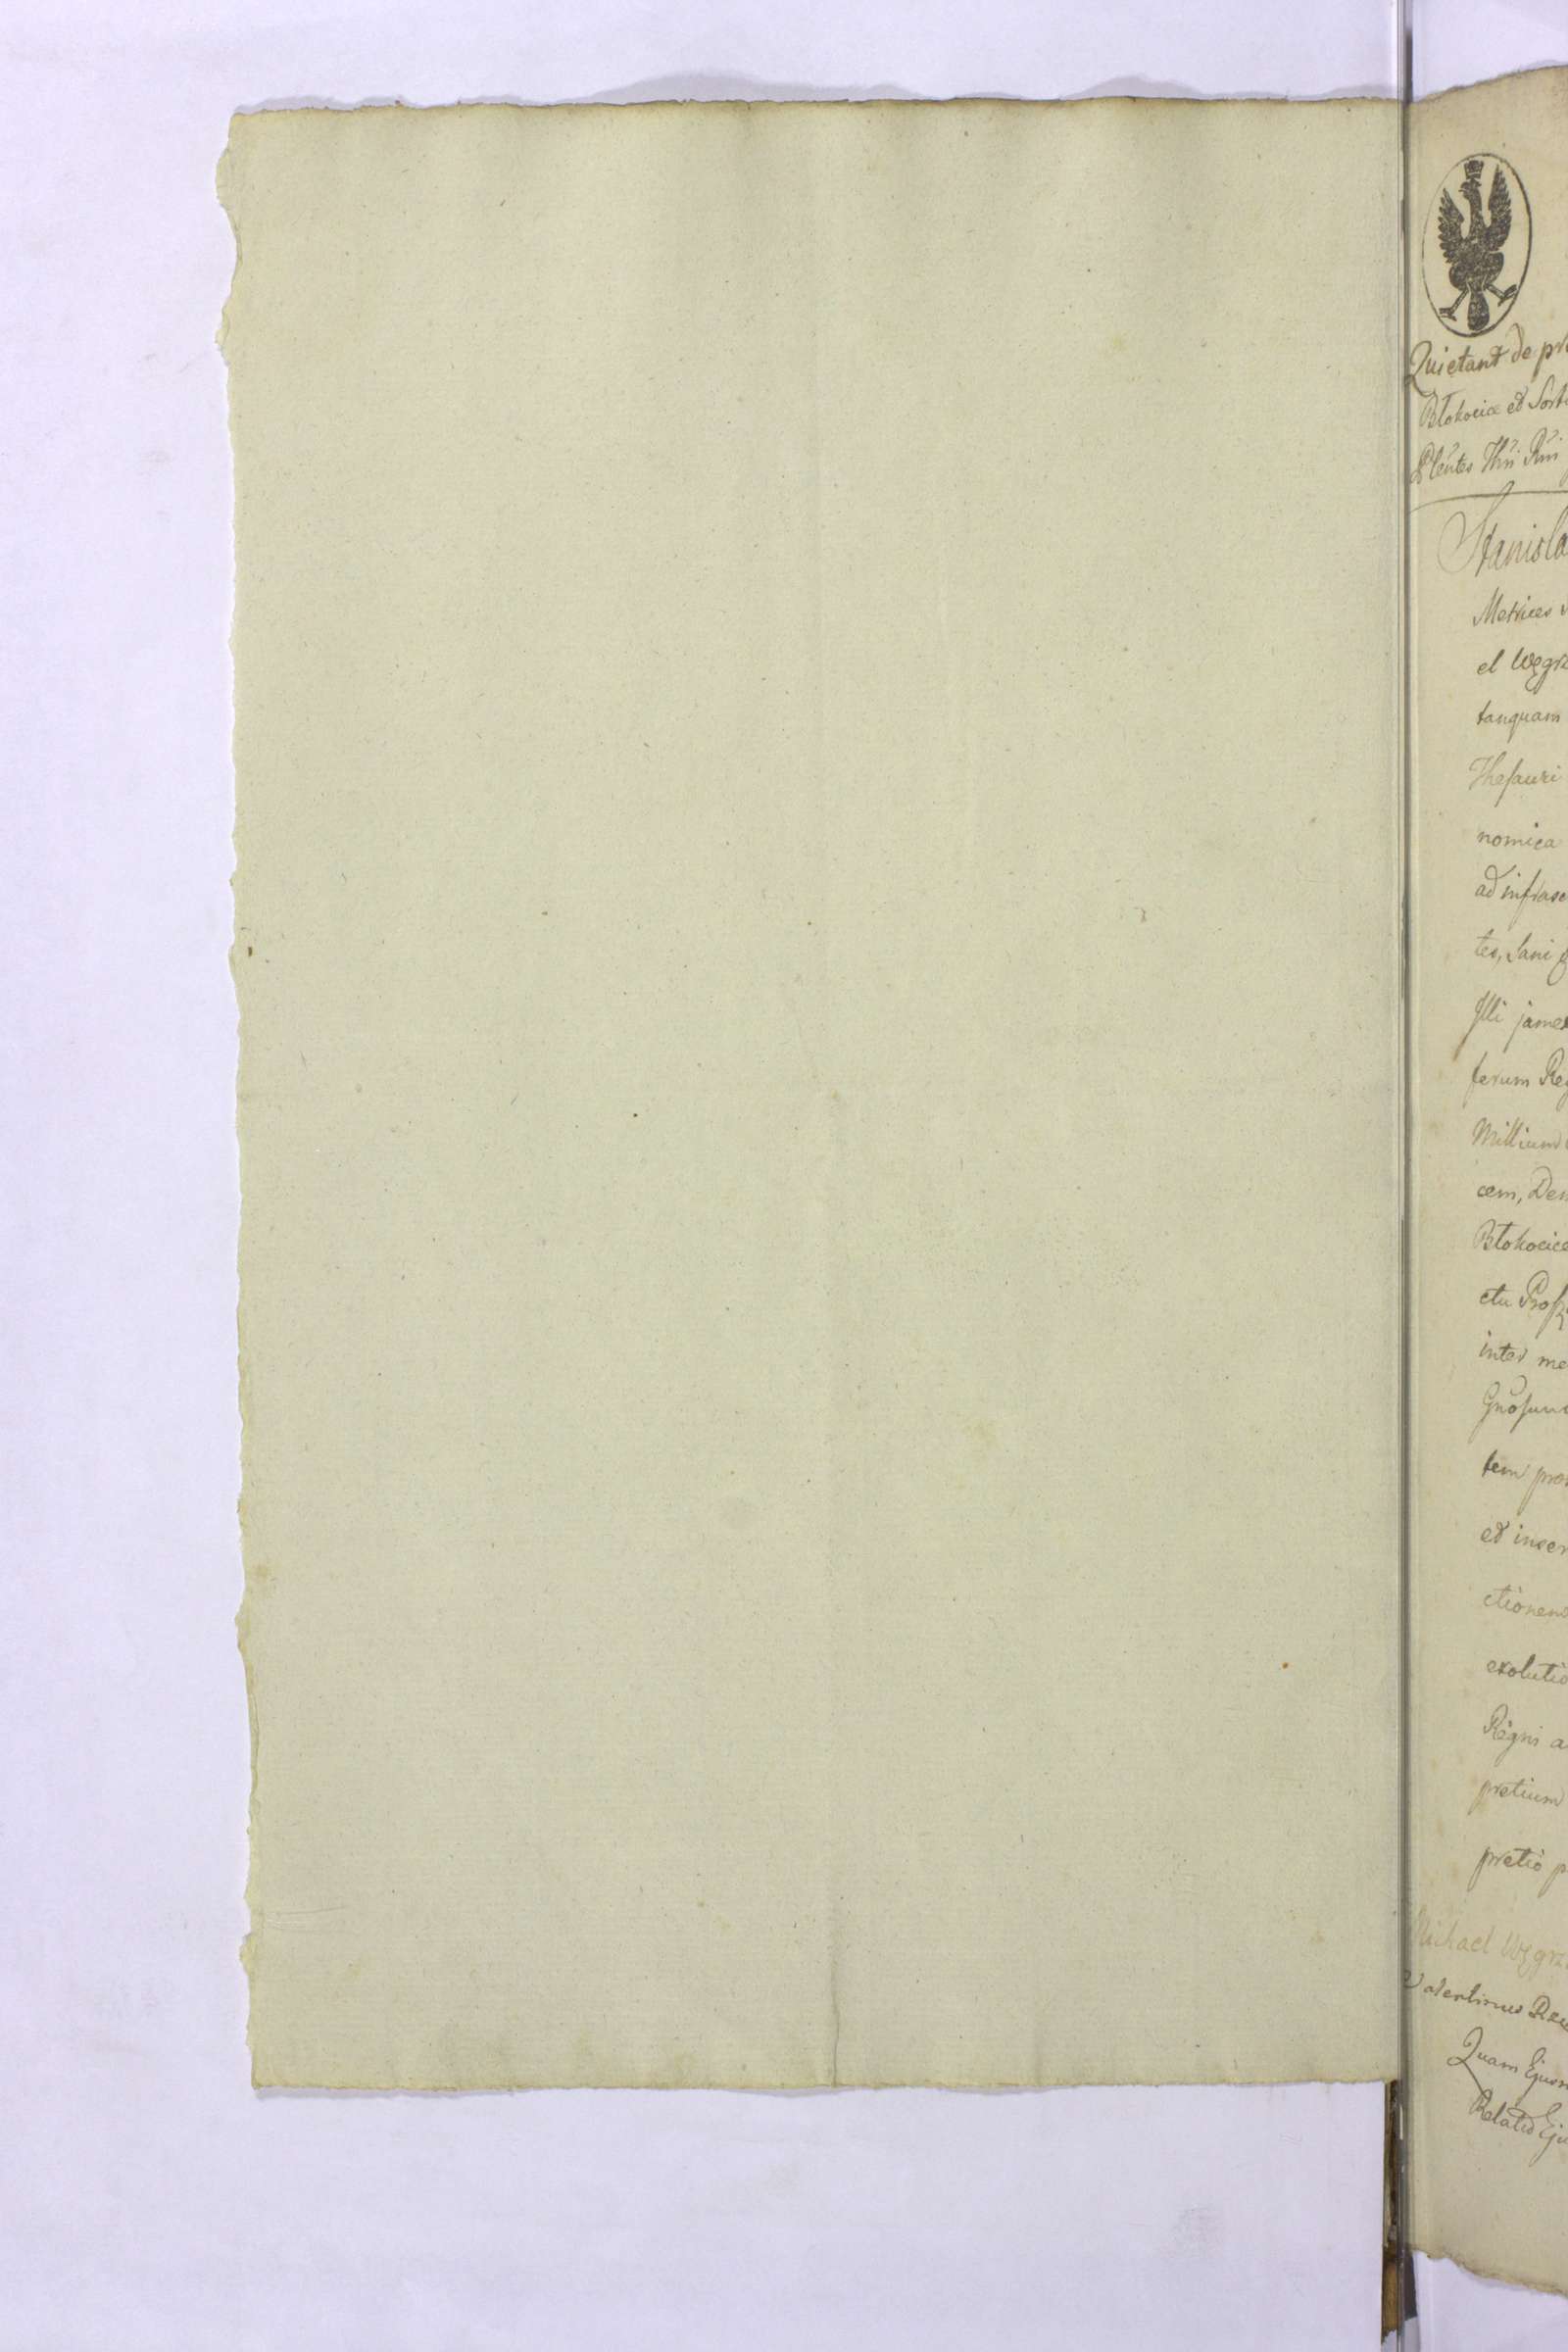 Quietant de pr
Błokocice et Sort
Stanisla
Metrices
el Węgrz
tanquam
Thesauri
nomica
ad infrasc
tes, Sani
Illi jam
ferum Reg
Millium
cem, Den
Błokocice
ctu
inter me
Gnosum
tem pro
et inser
ctionem
exolutio
Regni a
pretium
pretio p
Michael Węgrz
Valentinus
Quam Ejus
Relatio Eju